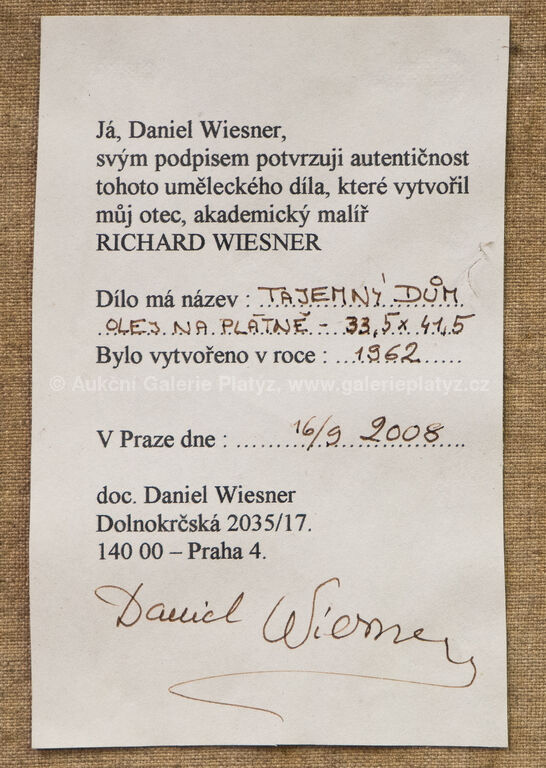 Já, Daniel Wiesner,
svým podpisem potvrzuji autentičnost
tohoto uměleckého díla, které vytvořil
můj otec, akademický malíř
RICHARD WIESNER
Dílo má název : TAJEMNÝ DŮM
OLEJ NA PLÁTNĚ - 33,5 x 41,5
Bylo vytvořeno v roce : ...1962......
© Aukční Galerie Platýz, www.galerieplatyz.cz
V Praze dne : .........16/9 2008....
doc. Daniel Wiesner
Dolnokrčská 2035/17.
140 00 – Praha 4.
Daniel Wiesner